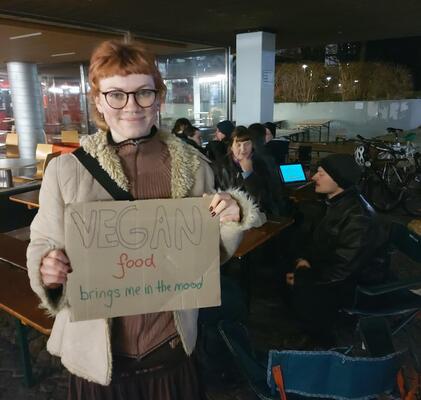 VEGAN
food
brings me in the mood